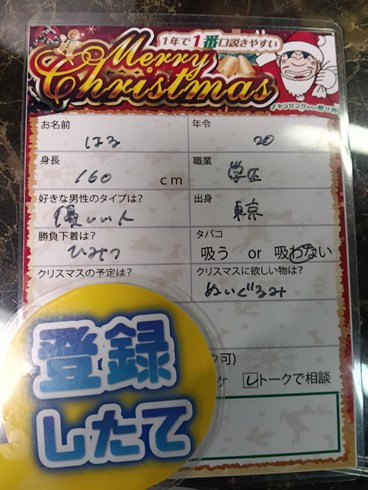 1年で1番口説きやすい
Merry
Christmas
お名前
はる
年令
20
身長
160 cm
職業
学生
好きな男性のタイプは?
優しい人
出身
東京
勝負下着は?
ひみつ
タバコ
吸う or 吸わない
クリスマスの予定は?
クリスマスに欲しい物は?
ぬいぐるみ
登録
したて
可)
トークで相談